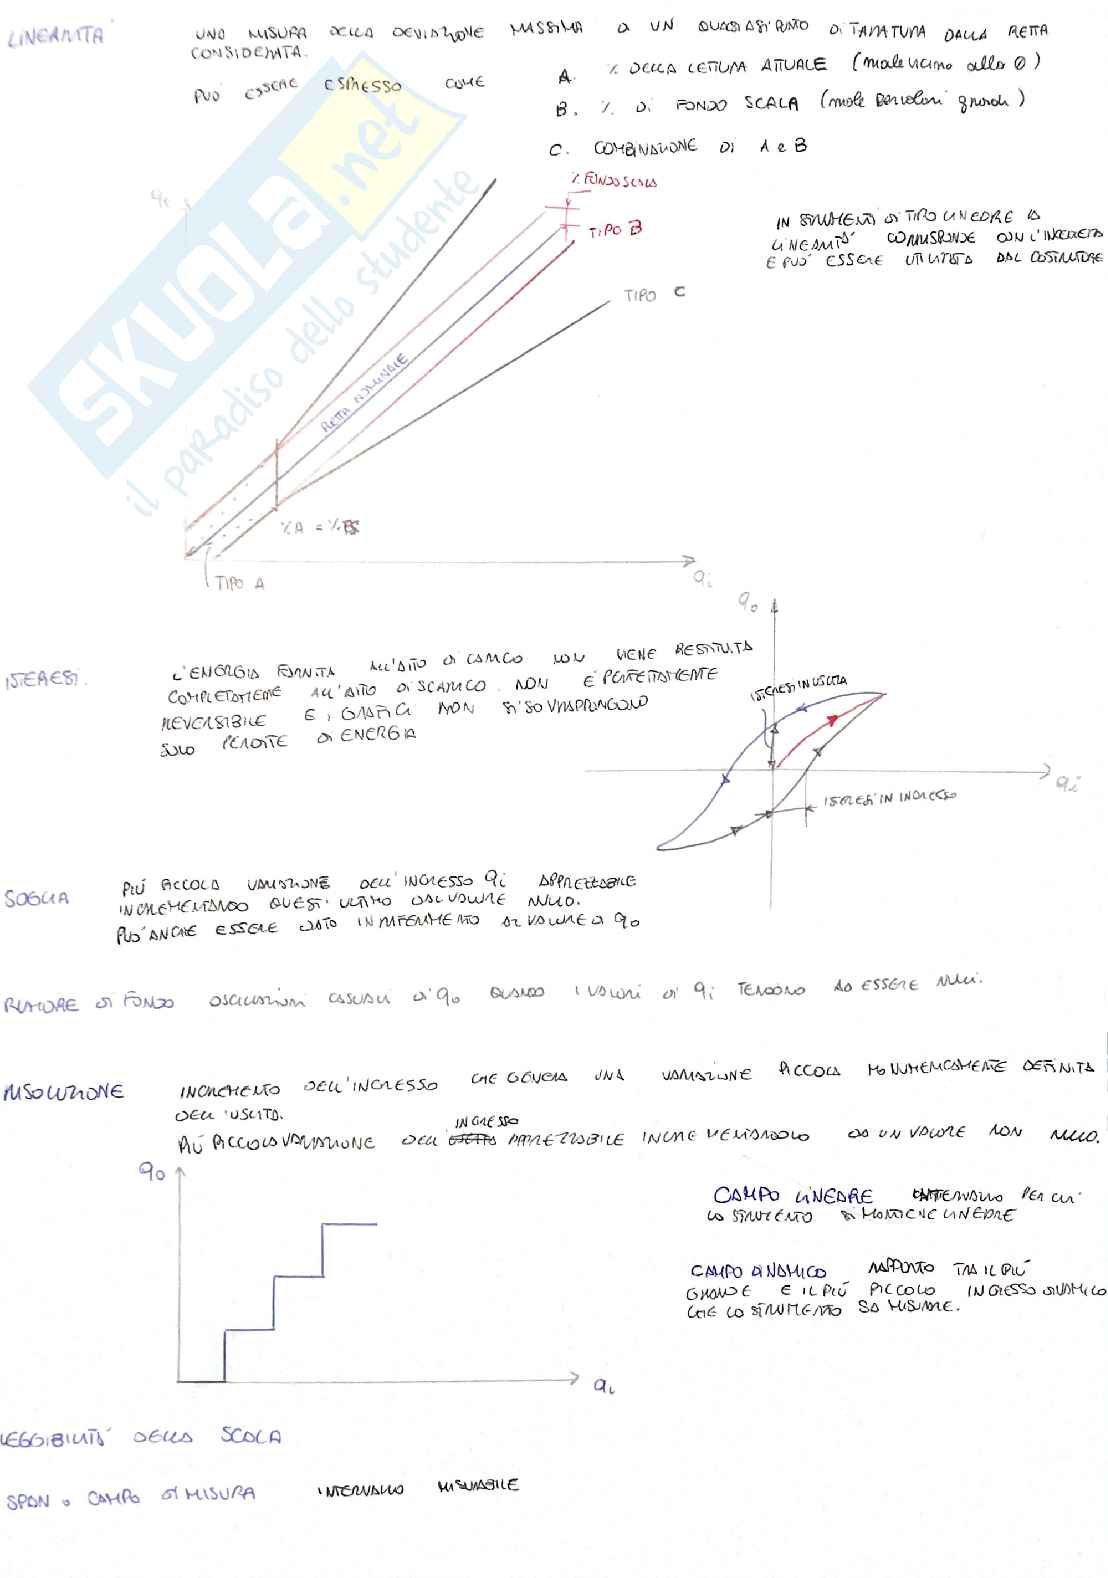 LINEARITÀ
UNA MISURA DELLA DEVIAZIONE MASSIMA DI UN QUALSIASI PUNTO DI TARATURA DALLA RETTA
CONSIDERATA.
PUÒ ESSERE ESPRESSO COME
A. % DELLA LETTURA ATTUALE (male vicino allo 0)
B. % DI FONDO SCALA (male per valori grandi)
C. COMBINAZIONE DI A e B
% FONDO SCALA
TIPO B
IN STRUMENTI DI TIPO LINEARE LA
LINEARITÀ CORRISPONDE CON L'INCERTEZZA
E PUÒ ESSERE UTILIZZATA DAL COSTRUTTORE
TIPO C
RETTA NOMINALE
%A = %FS
TIPO A
qi
qo
SKUOLA.net
il paradiso dello studente
ISTERESI.
L'ENERGIA FORNITA ALL'ATTO DI CARICO NON VIENE RESTITUITA
COMPLETAMENTE ALL'ATTO DI SCARICO. NON È PERFETTAMENTE
REVERSIBILE E I GRAFICI NON SI SOVRAPPONGONO
SOLO PERDITE DI ENERGIA
ISTERESI IN USCITA
qi
ISTERESI IN INGRESSO
SOGLIA
PIÙ PICCOLA VARIAZIONE DELL'INGRESSO qi APPREZZABILE
INCREMENTANDO QUEST'ULTIMO DAL VALORE NULLO.
PUÒ ANCHE ESSERE DATO IN RIFERIMENTO AL VALORE DI qo
RUMORE DI FONDO OSCILLAZIONI CASUALI DI qo QUANDO I VALORI DI qi TENDONO AD ESSERE NULLI.
RISOLUZIONE
INCREMENTO DELL'INGRESSO CHE GENERA UNA VARIAZIONE PICCOLA MA NUMERICAMENTE DEFINITA
DELL'USCITA.
INGRESSO
PIÙ PICCOLA VARIAZIONE DELL' APPREZZABILE INCREMENTANDOLO DA UN VALORE NON NULLO.
qo
CAMPO LINEARE INTERVALLO PER CUI
LO STRUMENTO SI MANTIENE LINEARE
CAMPO DINAMICO RAPPORTO TRA IL PIÙ
GRANDE E IL PIÙ PICCOLO INGRESSO DINAMICO
CHE LO STRUMENTO SA MISURARE.
qi
LEGGIBILITÀ DELLA SCALA
SPAN o CAMPO DI MISURA INTERVALLO MISURABILE